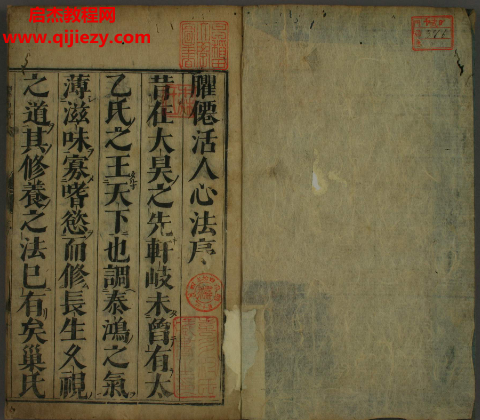 启杰教程网
www.qijiezy.com
臞僊活人心法序
昔在大昊之先軒岐未曾有太
乙氏之王天下也調泰鴻之氣
薄滋味寡嗜慾而修長生久視
之道其修養之法已有矣巢氏